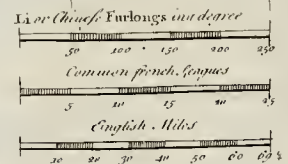 Li or Chinese Furlongs in a degree
50 100 150 200 250
Common french leagues
5 10 15 20 25
English Miles
10 20 30 40 50 60 69½